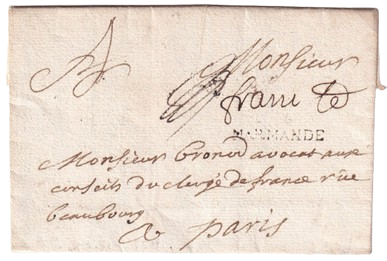 Monsieur
franc
MARMANDE
Monsieur Bronod avocat aux
conseils du clergé de france rüe
beaubourg
a paris